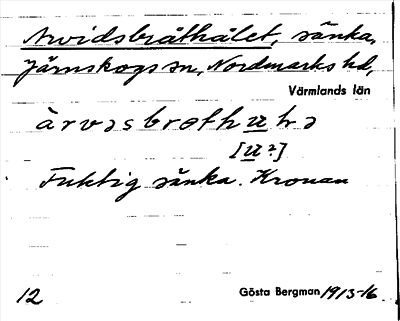 Arvidsbråthålet, sänka,
Järnskogs sn, Nordmarks hd,
Värmlands län
[u?]
Fuktig sänka. Kronan
12 Gösta Bergman 1913-16